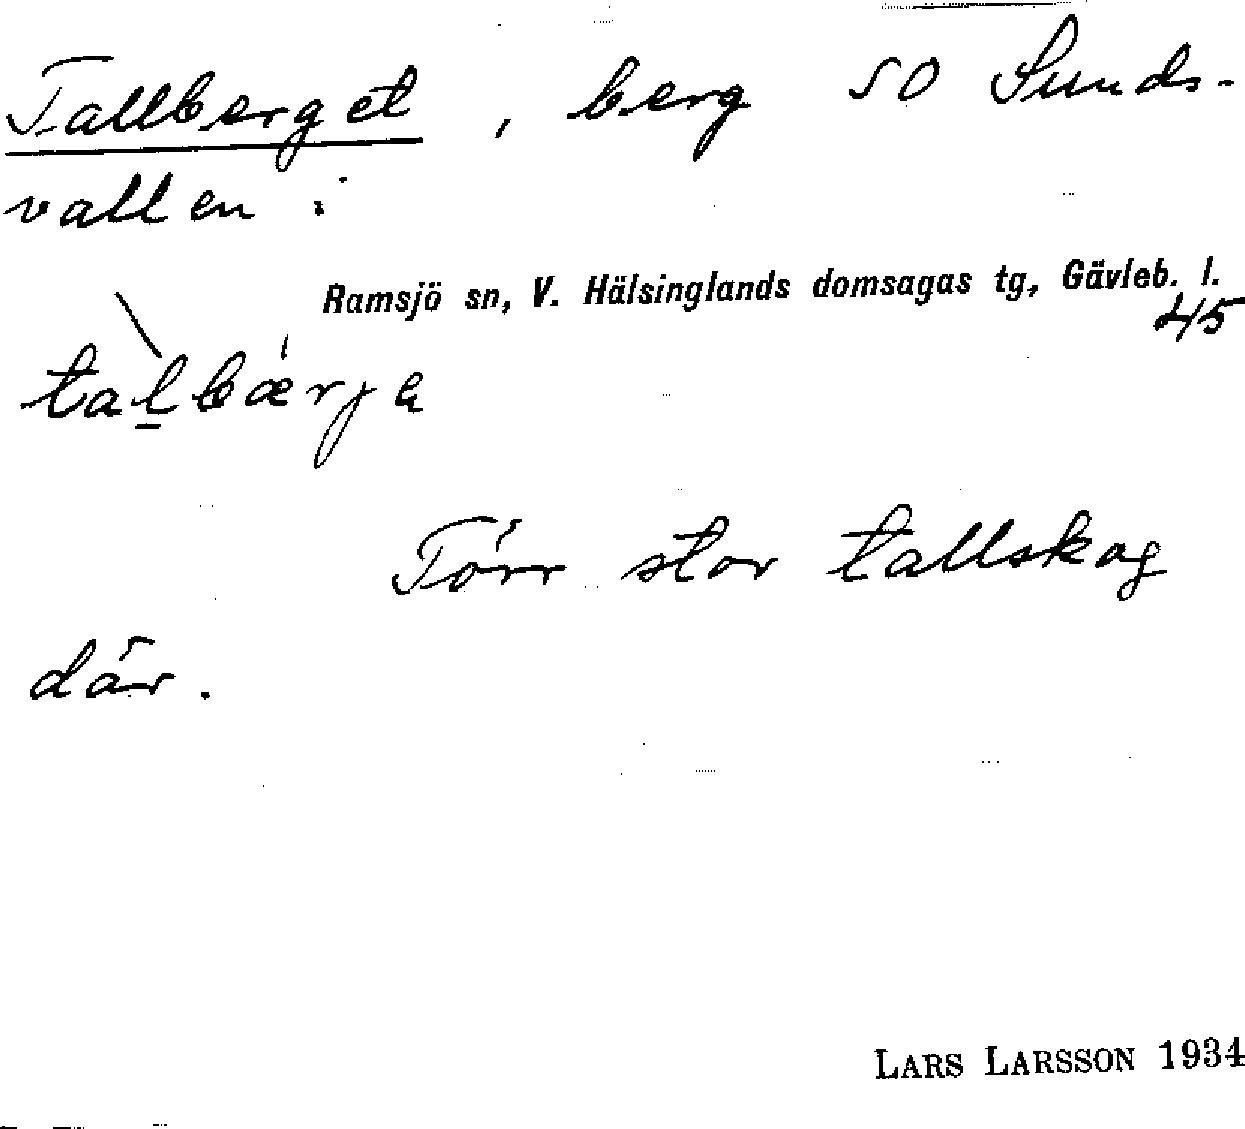 Tallberget, berg SO Sunds-
vallen i
Ramsjö sn, V. Hälsinglands domsagas tg, Gävleb. l.
45
tàl̲bǽrja
Förr stor tallskog
där.
LARS LARSSON 1934